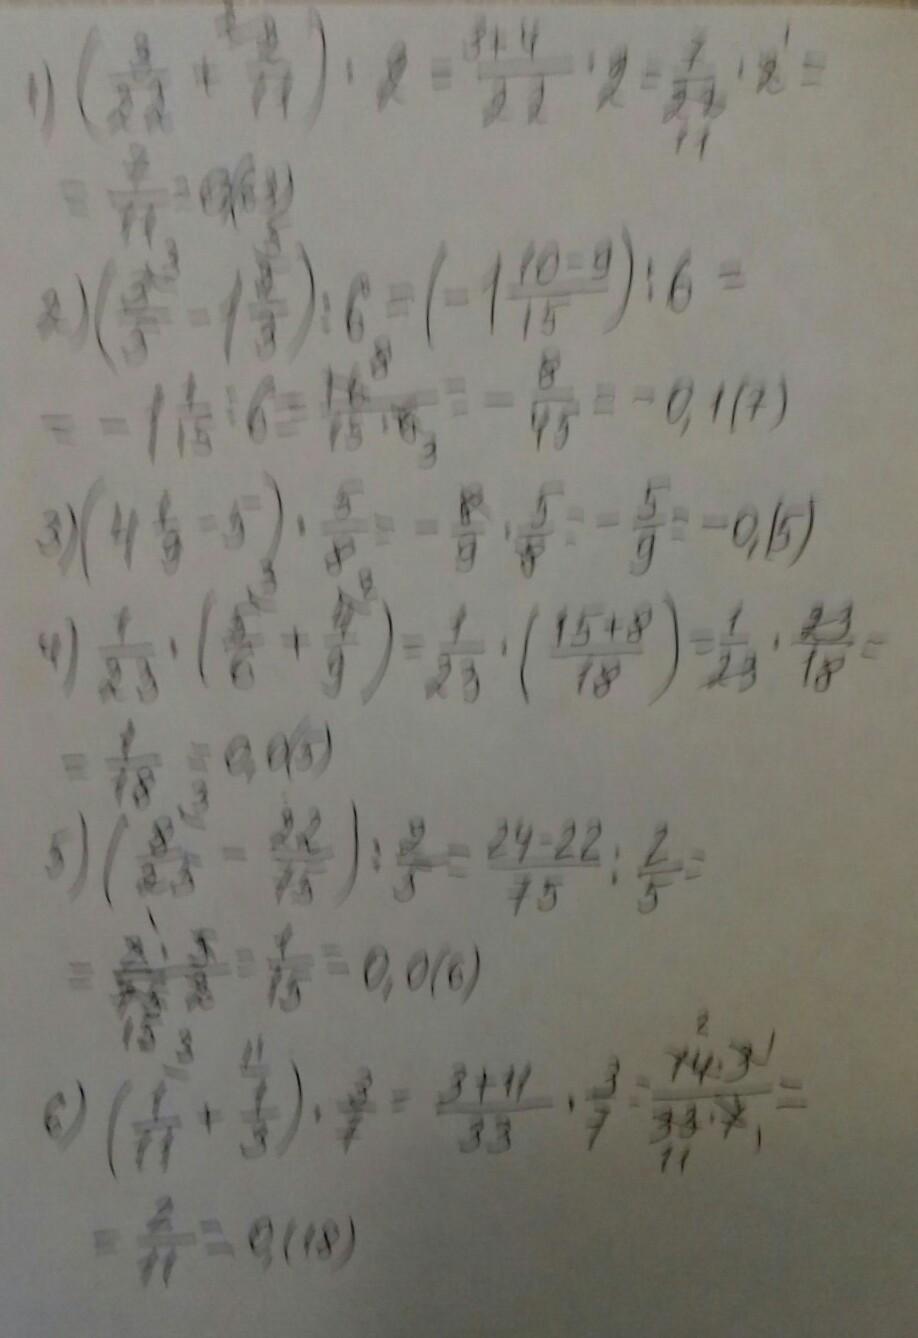 1) (3/22 + 2/11) · 2 = 3+4/22 · 2 = 7/22 · 2 =
= 7/11 = 0,(63)
2) (3/5 - 1 2/3) : 6 = (-1 10-9/15) : 6 =
= -1 1/15 : 6 = 16/15·6 = - 8/45 = -0,1(7)
3) (4 1/9 - 5) · 5/8 = - 8/9 · 5/8 = - 5/9 = -0,(5)
4) 1/23 · (5/6 + 4/9) = 1/23 · (15+8/18) = 1/23 · 23/18 =
= 1/18 = 0,0(5)
5) (8/25 - 22/75) : 2/5 = 24-22/75 : 2/5 =
= 2/75 · 5/2 = 1/15 = 0,0(6)
6) (1/11 + 1/3) · 3/7 = 3+11/33 · 3/7 = 14·3/33·7 =
= 2/11 = 0,(18)